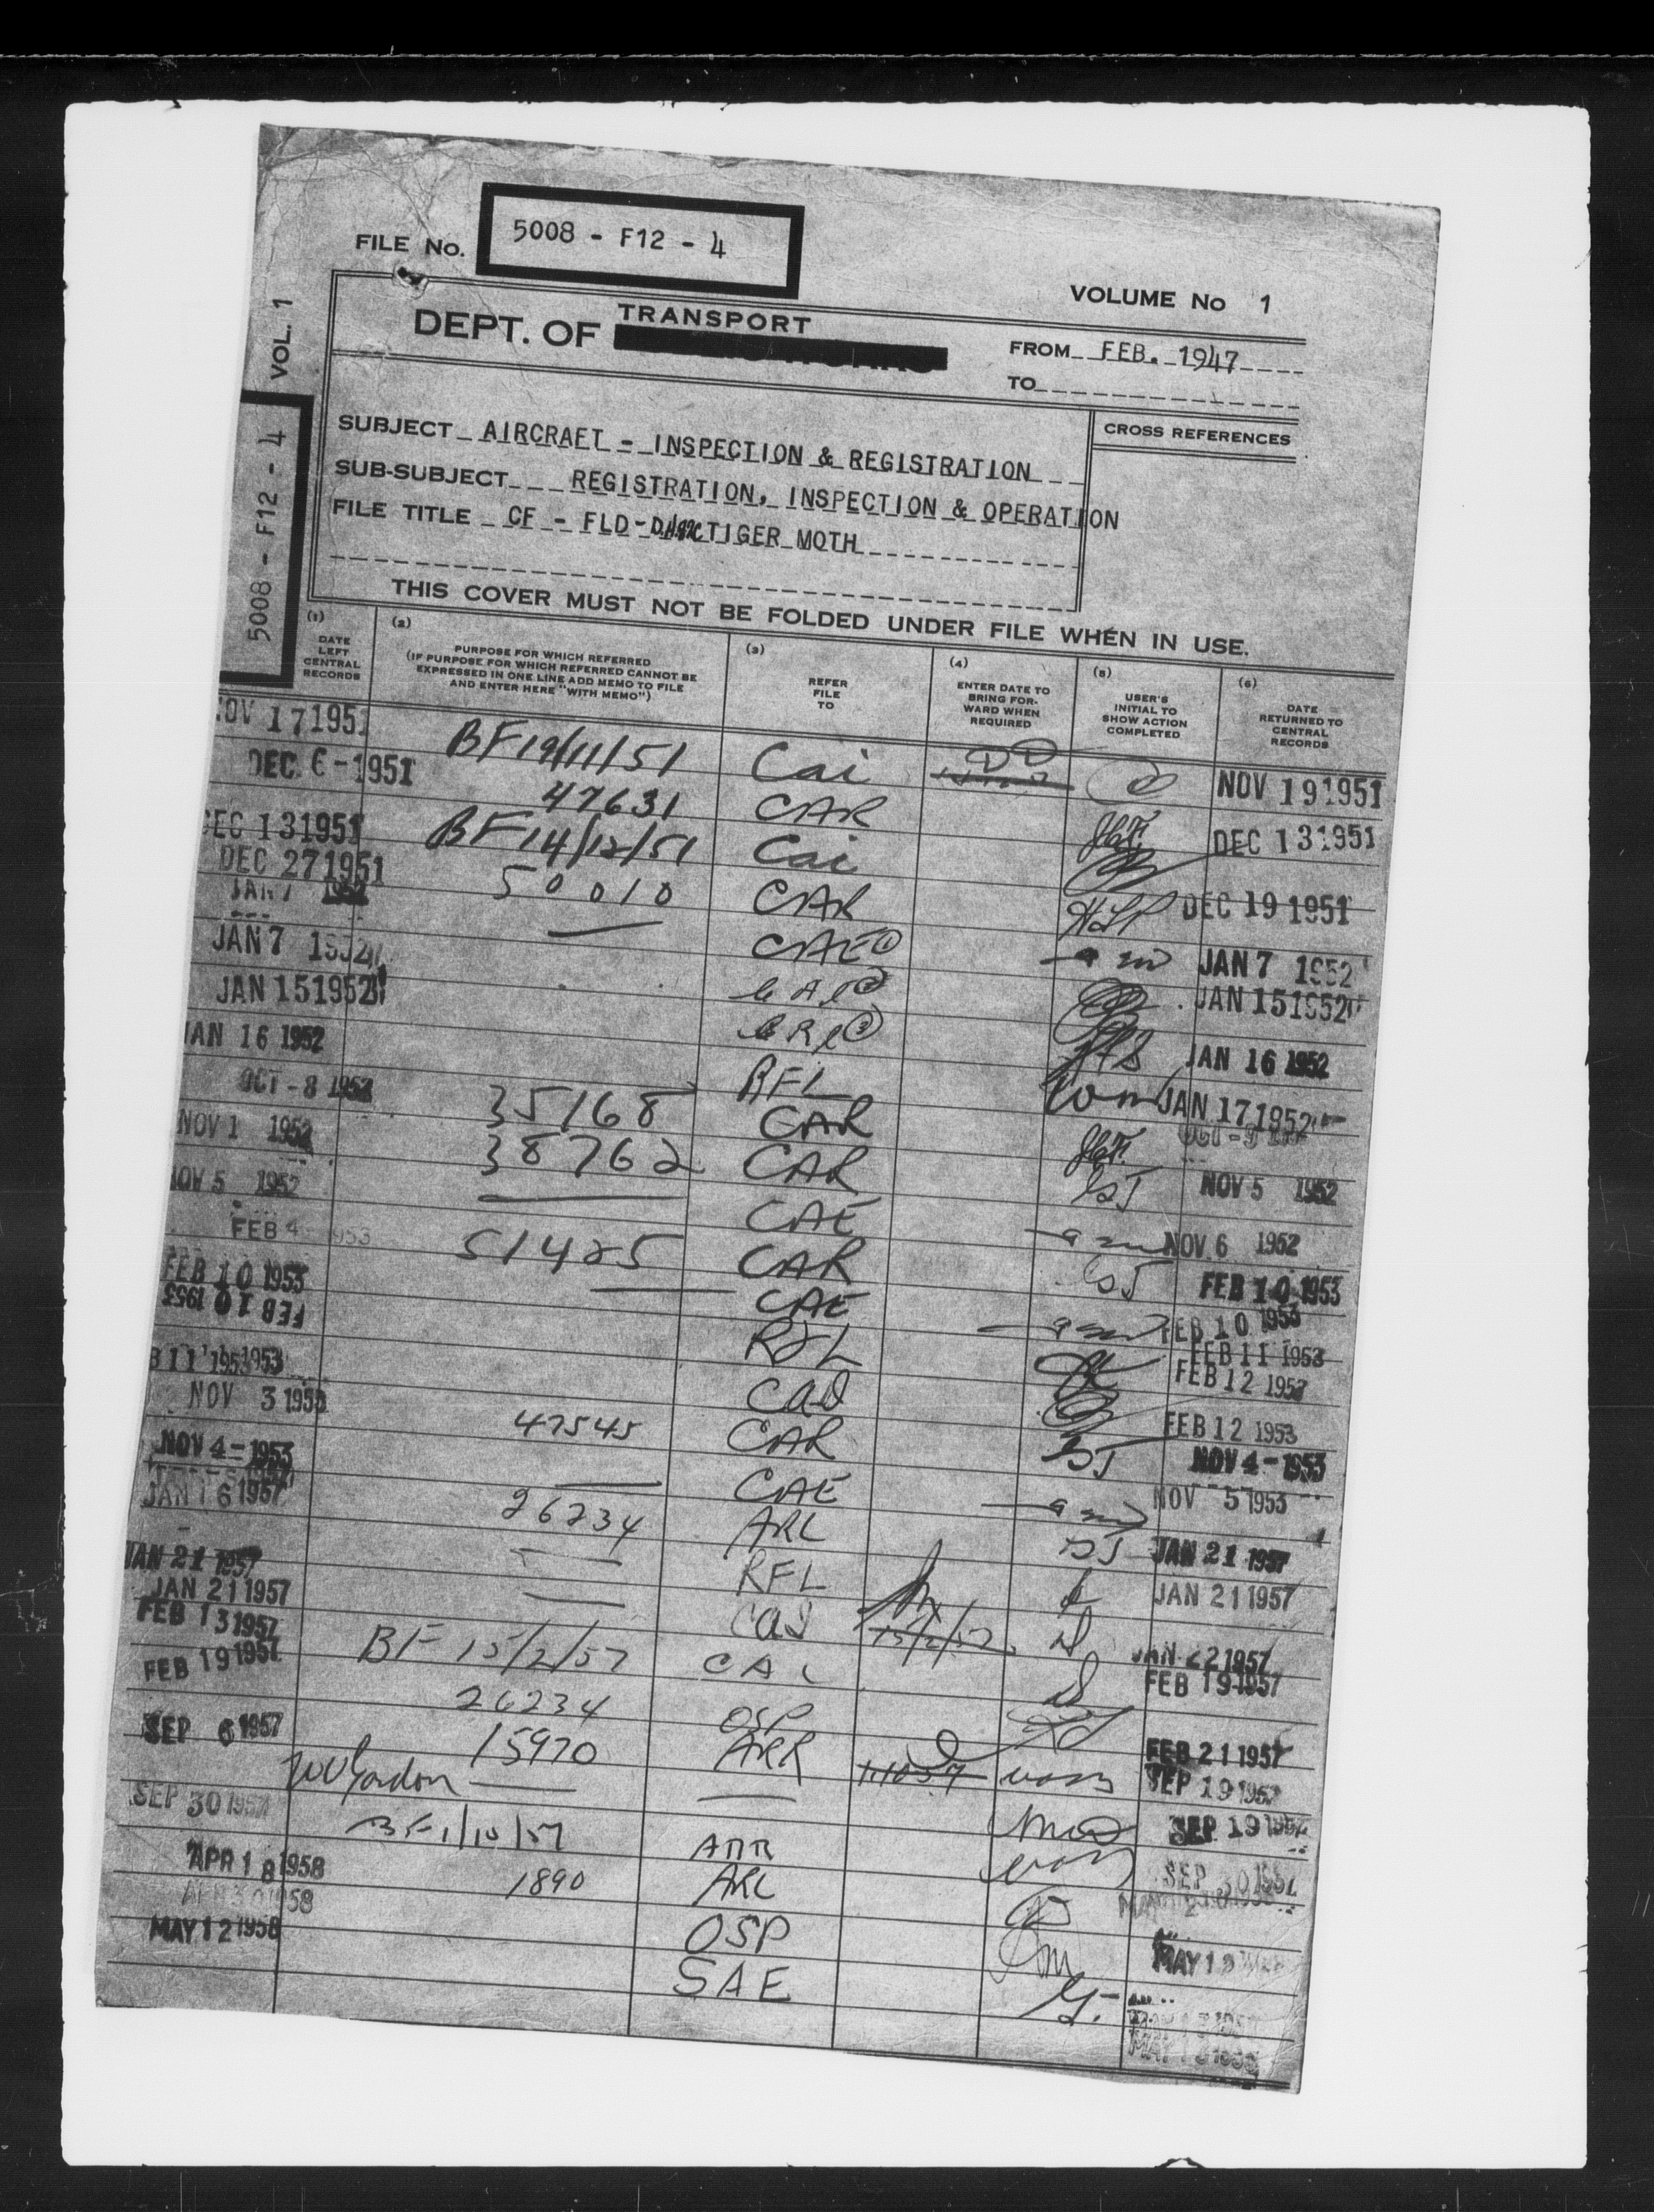 FILE No. 5008 - F12 - 4
VOLUME No 1
VOL. 1
5008 - F12 - 4
DEPT. OF TRANSPORT
FROM FEB. 1947
TO
SUBJECT AIRCRAFT - INSPECTION & REGISTRATION
CROSS REFERENCES
SUB-SUBJECT REGISTRATION, INSPECTION & OPERATION
FILE TITLE CF - FLD - TIGER MOTH
THIS COVER MUST NOT BE FOLDED UNDER FILE WHEN IN USE.
(1) DATE LEFT CENTRAL RECORDS
(2) PURPOSE FOR WHICH REFERRED (IF PURPOSE FOR WHICH REFERRED CANNOT BE EXPRESSED IN ONE LINE ADD MEMO TO FILE AND ENTER HERE "WITH MEMO")
(3) REFER FILE TO
(4) ENTER DATE TO BRING FORWARD WHEN REQUIRED
(5) USER'S INITIAL TO SHOW ACTION COMPLETED
(6) DATE RETURNED TO CENTRAL RECORDS
NOV 17 1951 BF 19/11/51 Cai NOV 19 1951
DEC 6 - 1951 47631 CAR DEC 13 1951
DEC 13 1951 BF 14/12/51 Cai DEC 19 1951
DEC 27 1951 50010 CAR HLP JAN 7 1952
JAN 7 1952 CAE JAN 15 1952
JAN 7 1952
JAN 15 1952 JAN 16 1952
JAN 16 1952 RFL JAN 17 1952
OCT - 8 1952 35168 CAR
NOV 1 1952 38762 CAR NOV 5 1952
NOV 5 1952 CAE NOV 6 1952
FEB 4 1953 51425 CAR FEB 10 1953
FEB 10 1953 CAE FEB 10 1953
FEB 10 1953 RFL FEB 11 1953
FEB 12 1953
FEB 11 1953 CAI FEB 12 1953
NOV 3 1953 47545 CAR NOV 4 - 1953
NOV 4 - 1953 CAE NOV 5 1953
JAN 16 1957 26234 ARL JAN 21 1957
JAN 21 1957 RFL JAN 21 1957
JAN 21 1957 CAI 15/2/57 JAN 22 1957
FEB 13 1957 BF 15/2/57 CAI FEB 19 1957
FEB 19 1957 26234 OSP FEB 21 1957
SEP 6 1957 15970 ARR SEP 19 1957
SEP 19 1957
SEP 30 1957 BF 1/10/57 ARR SEP 30 1957
APR 18 1958 1890 ARL
APR 30 1958 OSP
MAY 12 1958 SAE